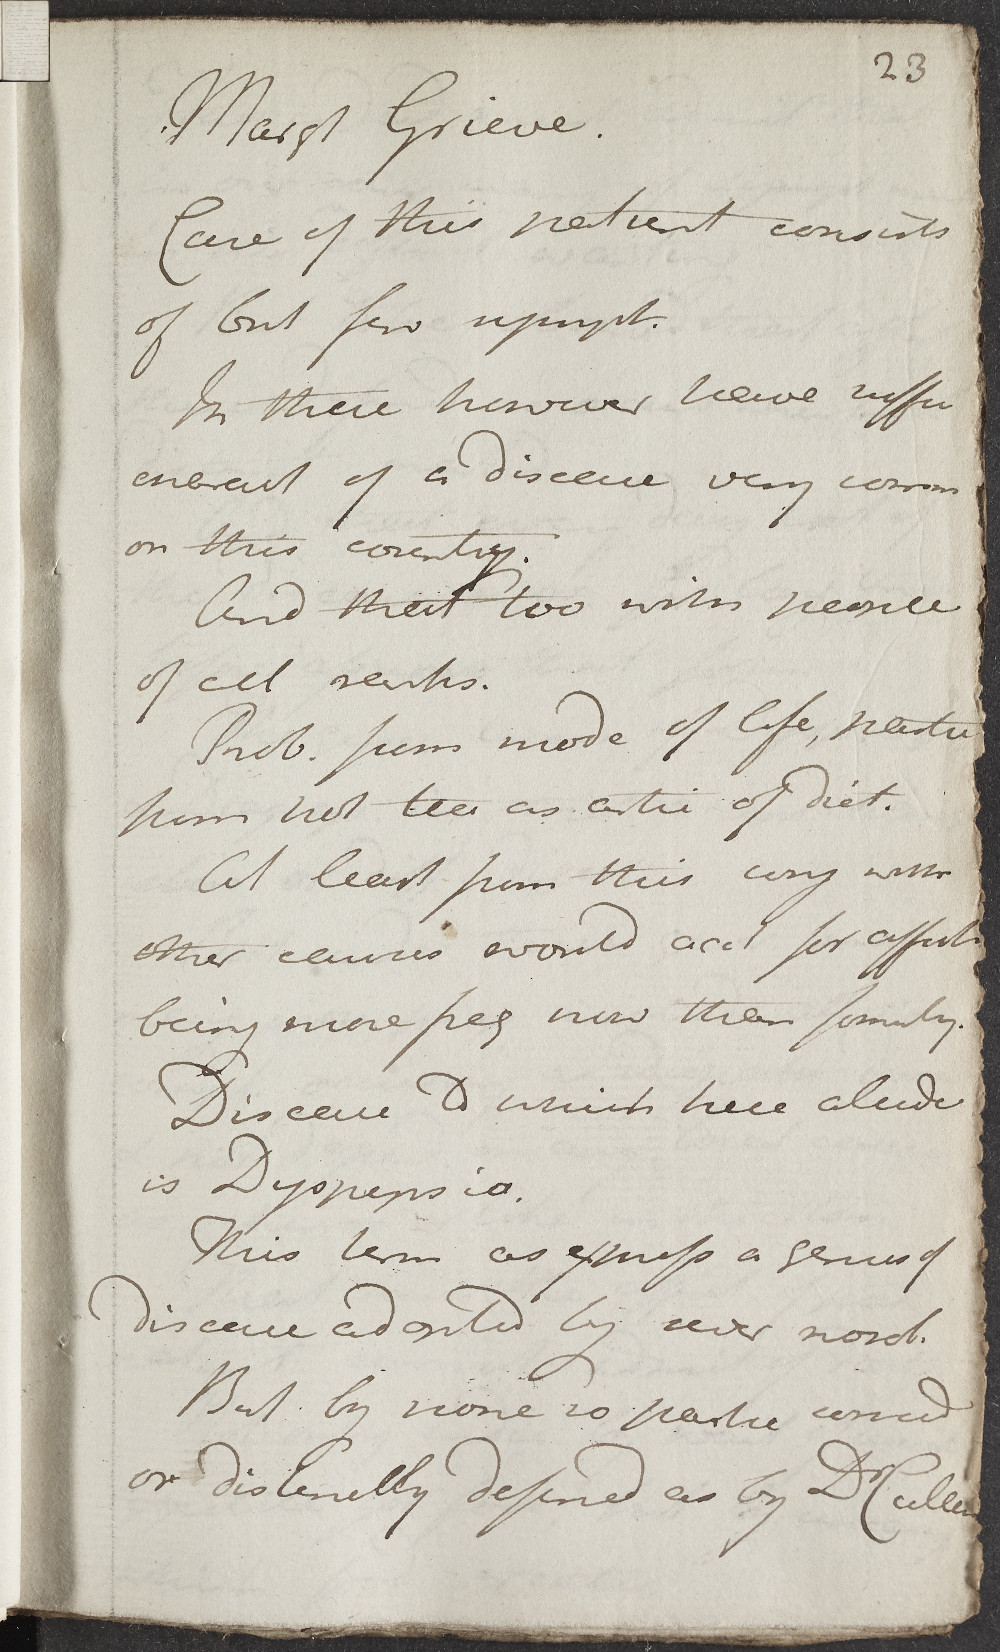 23
Margt Grieve.
Case of this patient consists
of but few sympt.
In these however have suffi
of a disease very comm
on this country.
And that too with people
of all ranks.
Prob. from mode of life, partic
from hot tea as artic of diet.
At least from this conj with
other causes would acct for affect
being more freq now than formerly.
Disease to which here allude
is Dyspepsia.
This term as express a genus of
disease adopted by sever nosol.
But by none so partic
or distinctly defined as by Dr Cullen